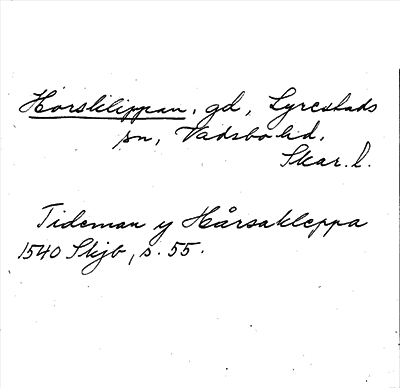 Horsklippan, gd, Lyrestads
sn, Vadsbo hd,
Skar. l.
Tideman y Hårsakleppa
1540 Skjb, s. 55.